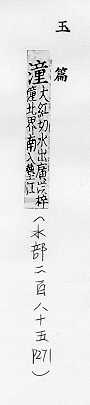 玉篇
潼大紅切水出廣漢梓
潼北界南入墊江
(水部二百八十五P271)